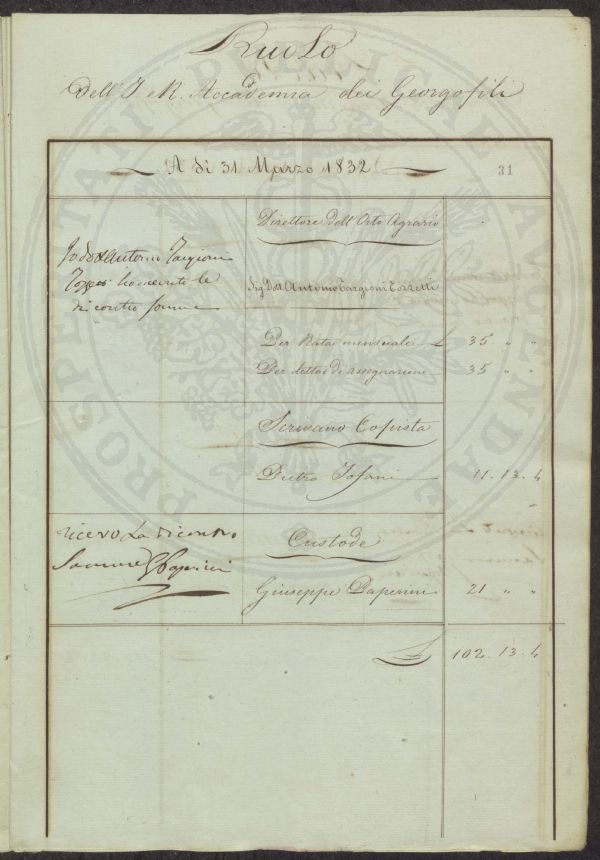 Ruolo
Dell'I e R. Accademia dei Georgofili
A di 31 Marzo 1832
31
Direttore dell'Orto Agrario
Io Dott Antonio Targioni
Tozzetti ho ricevuto le
di contro somme
Sig. Dott. Antonio Targioni Tozzetti
Per Rata mensuale £ 35 " "
Per dettae di assegnazione 35 " "
Scrivano Copista
Pietro 11. 13. 4
ricevo La dicontro
Somme G Paperini
Custode
Giuseppe Paperini 21 " "
£ 102. 13. 4
PROSPERITATI PUBLICAE AUGENDAE